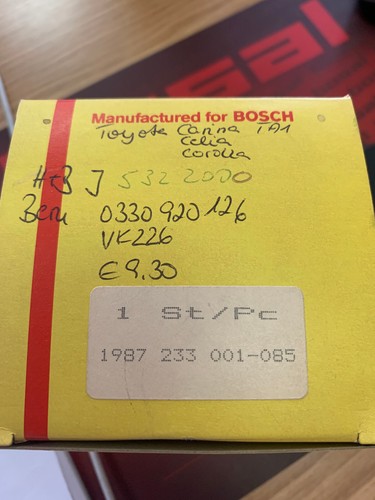 Manufactured for BOSCH
Toyota Carina TA1
Celia
Corolla
H+B J 5322000
Beru 0330920126
VK226
€9.30
1 St/Pc
1987 233 001-085